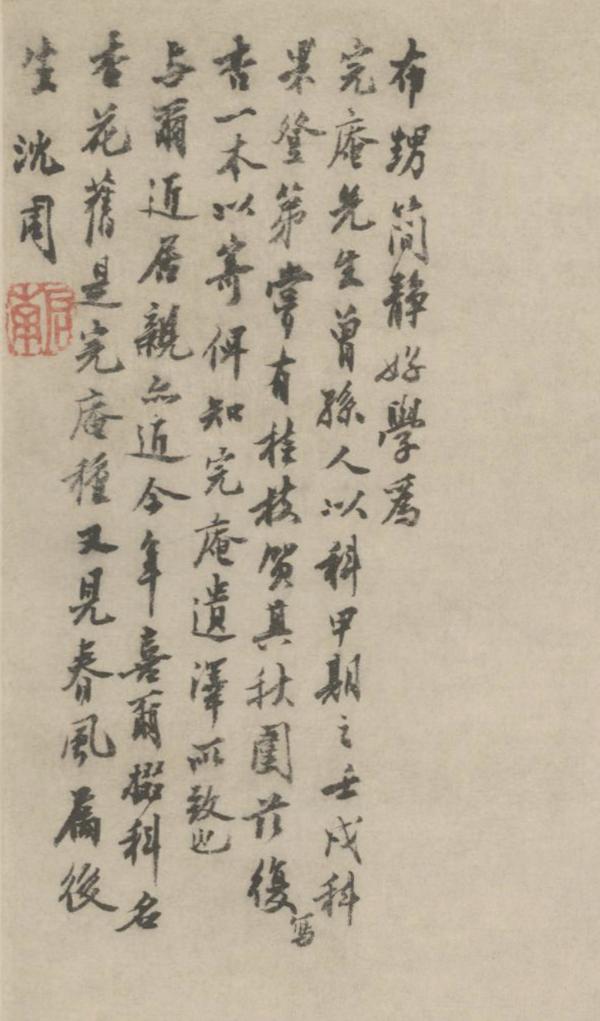 布甥簡靜好學爲
完庵先生曾孫人以科甲期之壬戌科
果登第嘗有桂枝賀其秋闈茲復寫
杏一本以寄俾知完庵遺澤所致也
与爾近居親亦近今年喜爾掇科名
杏花舊是完庵種又見春風屬後
生沈周
啟南